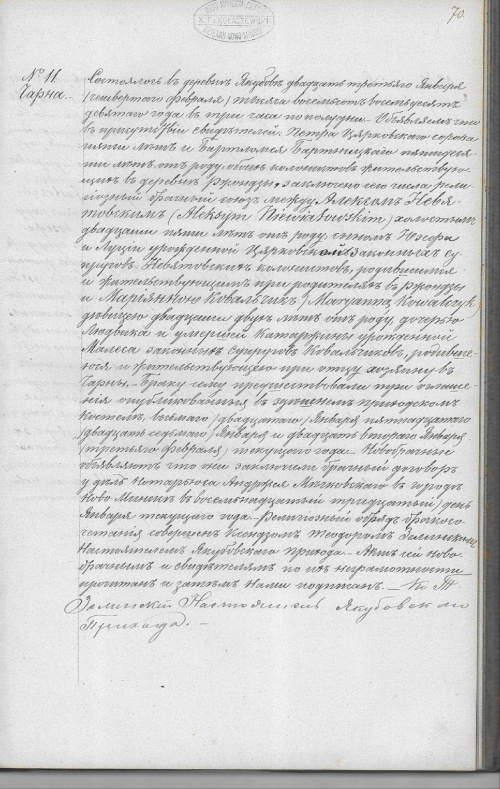 70
№ 11
Чарна.
Состоялось въ деревнѣ Якубовъ двадцать третьяго Января
(четвертаго Февраля) тысяча восемьсотъ восемьдесятъ
девятаго года въ три часа по полудни. Объявляемъ что
въ присутствіи свидѣтелей Петра Цярковскаго сорока
пяти лѣтъ и Бартломея пятидеся
ти лѣтъ отъ роду, обоихъ колонистовъ жительствую
щихъ въ деревнѣ Ржондзы, заключено сего числа рели
гіозный брачный союзъ между Алексѣемъ Невя
товскимъ (Aleksym Niewiadowskim) холостымъ
двадцати пяти лѣтъ отъ роду, сыномъ Юзефа
и Луціи урожденной Цярковской законныхъ су
пруговъ Невятовскихъ колонистовъ, родившимся
и жительствующимъ при родителяхъ въ Ржондзы
и Маріянною Ковальчикъ (Maryanna Kowalczyk)
дѣвицею двадцати двухъ лѣтъ отъ роду, дочерью
Людвика и умершей Катаржины урожденной
Малеса законныхъ супруговъ Ковальчиковъ, родившe
юся и жительствующею при отцу хозяину въ
Чарны. Браку сему предшествовали три оглаше
нія опубликованныя въ здѣшнемъ приходскомъ
костелѣ, восьмаго (двадцатаго) Января пятнадцатаго
(двадцать седьмаго) Января и двадцать втораго Января
(третьяго Февраля) текущаго года. Новобрачные
объявляютъ что они заключили брачный договоръ
у дѣлъ Нотаріюса Андржея въ городѣ
Ново Минскѣ въ восемнадцатый (тридцатый) день
Января текущаго года. Религіозный обрядъ бракосо
четанія совершенъ Ксендзомъ Теодоромъ Зелинскимъ
Настоятелемъ Якубовскаго Прихода. Актъ сей Ново
брачнымъ и свидѣтелямъ по ихъ неграмотности
прочитанъ и затѣмъ нами подписанъ.
Зелинскій Настоятель Якубовскаго
Прихода.